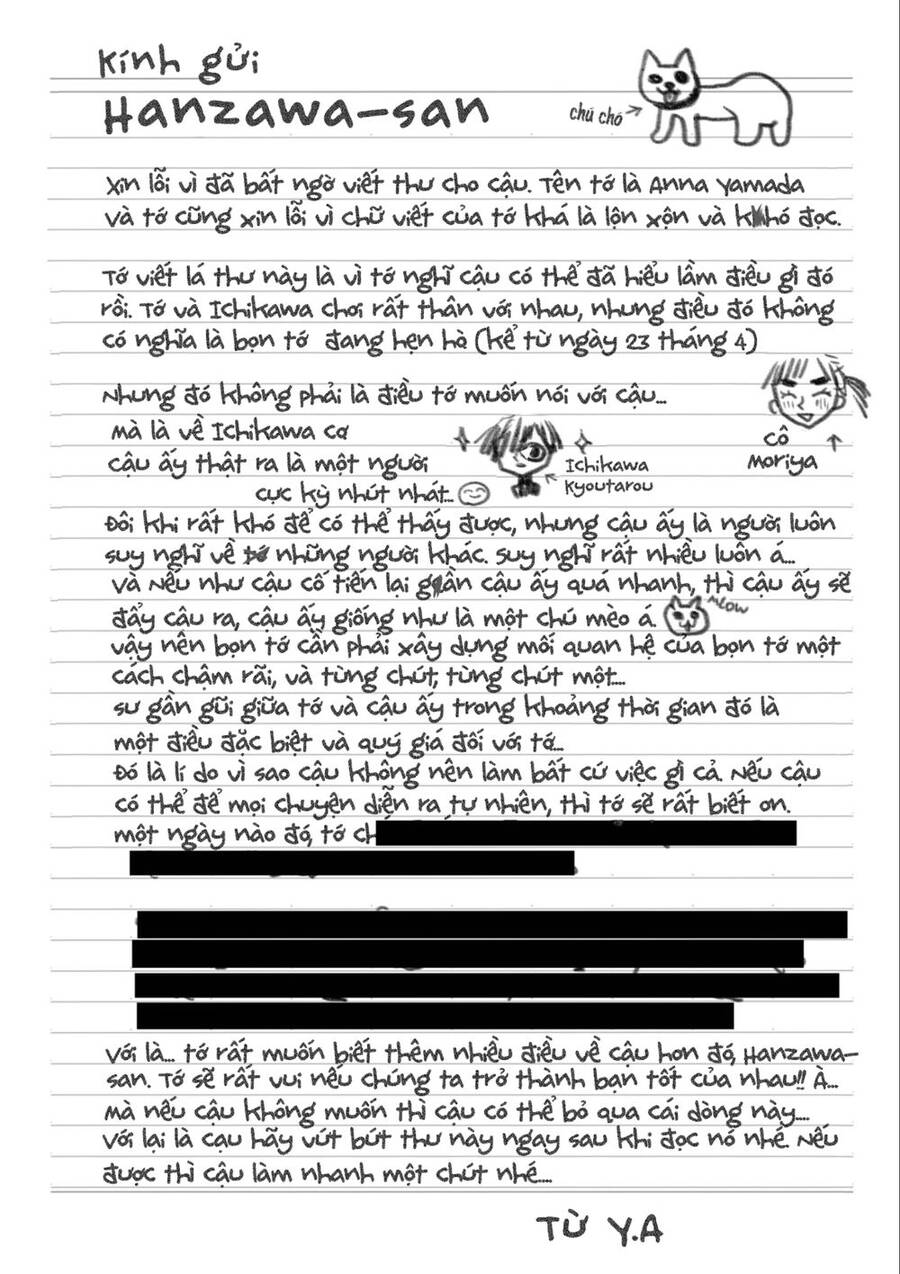 Kính gửi
Hanzawa-san
chú chó
Xin lỗi vì đã bất ngờ viết thư cho cậu. Tên tớ là Anna Yamada
và tớ cũng xin lỗi vì chữ viết của tớ khá là lộn xộn và khó đọc.
Tớ viết lá thư này là vì tớ nghĩ cậu có thể đã hiểu lầm điều gì đó
rồi. Tớ và Ichikawa chơi rất thân với nhau, nhưng điều đó không
có nghĩa là bọn tớ đang hẹn hò (kể từ ngày 23 tháng 4)
Nhưng đó không phải là điều tớ muốn nói với cậu...
mà là về Ichikawa cơ
cậu ấy thật ra là một người
cực kỳ nhút nhát...
Ichikawa
Kyoutarou
cô
Moriya
Đôi khi rất khó để có thể thấy được, nhưng cậu ấy là người luôn
suy nghĩ về những người khác. Suy nghĩ rất nhiều luôn á...
và Nếu như cậu cố tiến lại gần cậu ấy quá nhanh, thì cậu ấy sẽ
đẩy cậu ra, cậu ấy giống như là một chú mèo á.
meow
vậy nên bọn tớ cần phải xây dựng mối quan hệ của bọn tớ một
cách chậm rãi, và từng chút, từng chút một...
sư gần gũi giữa tớ và cậu ấy trong khoảng thời gian đó là
một điều đặc biệt và quý giá đối với tớ...
Đó là lí do vì sao cậu không nên làm bất cứ việc gì cả. Nếu cậu
có thể để mọi chuyện diễn ra tự nhiên, thì tớ sẽ rất biết ơn.
một ngày nào đó, tớ
Với là... tớ rất muốn biết thêm nhiều điều về cậu hơn đó, Hanzawa-
san. Tớ sẽ rất vui nếu chúng ta trở thành bạn tốt của nhau!! À...
mà nếu cậu không muốn thì cậu có thể bỏ qua cái dòng này....
với lại là cạu hãy vứt bứt thư này ngay sau khi đọc nó nhé. Nếu
được thì cậu làm nhanh một chút nhé....
Từ Y.A